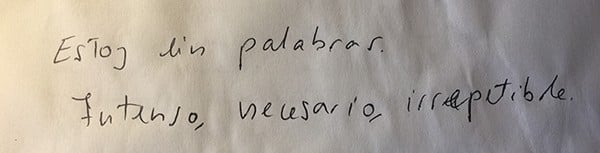 Estoy sin palabras.
Intenso, necesario, irrepetible.